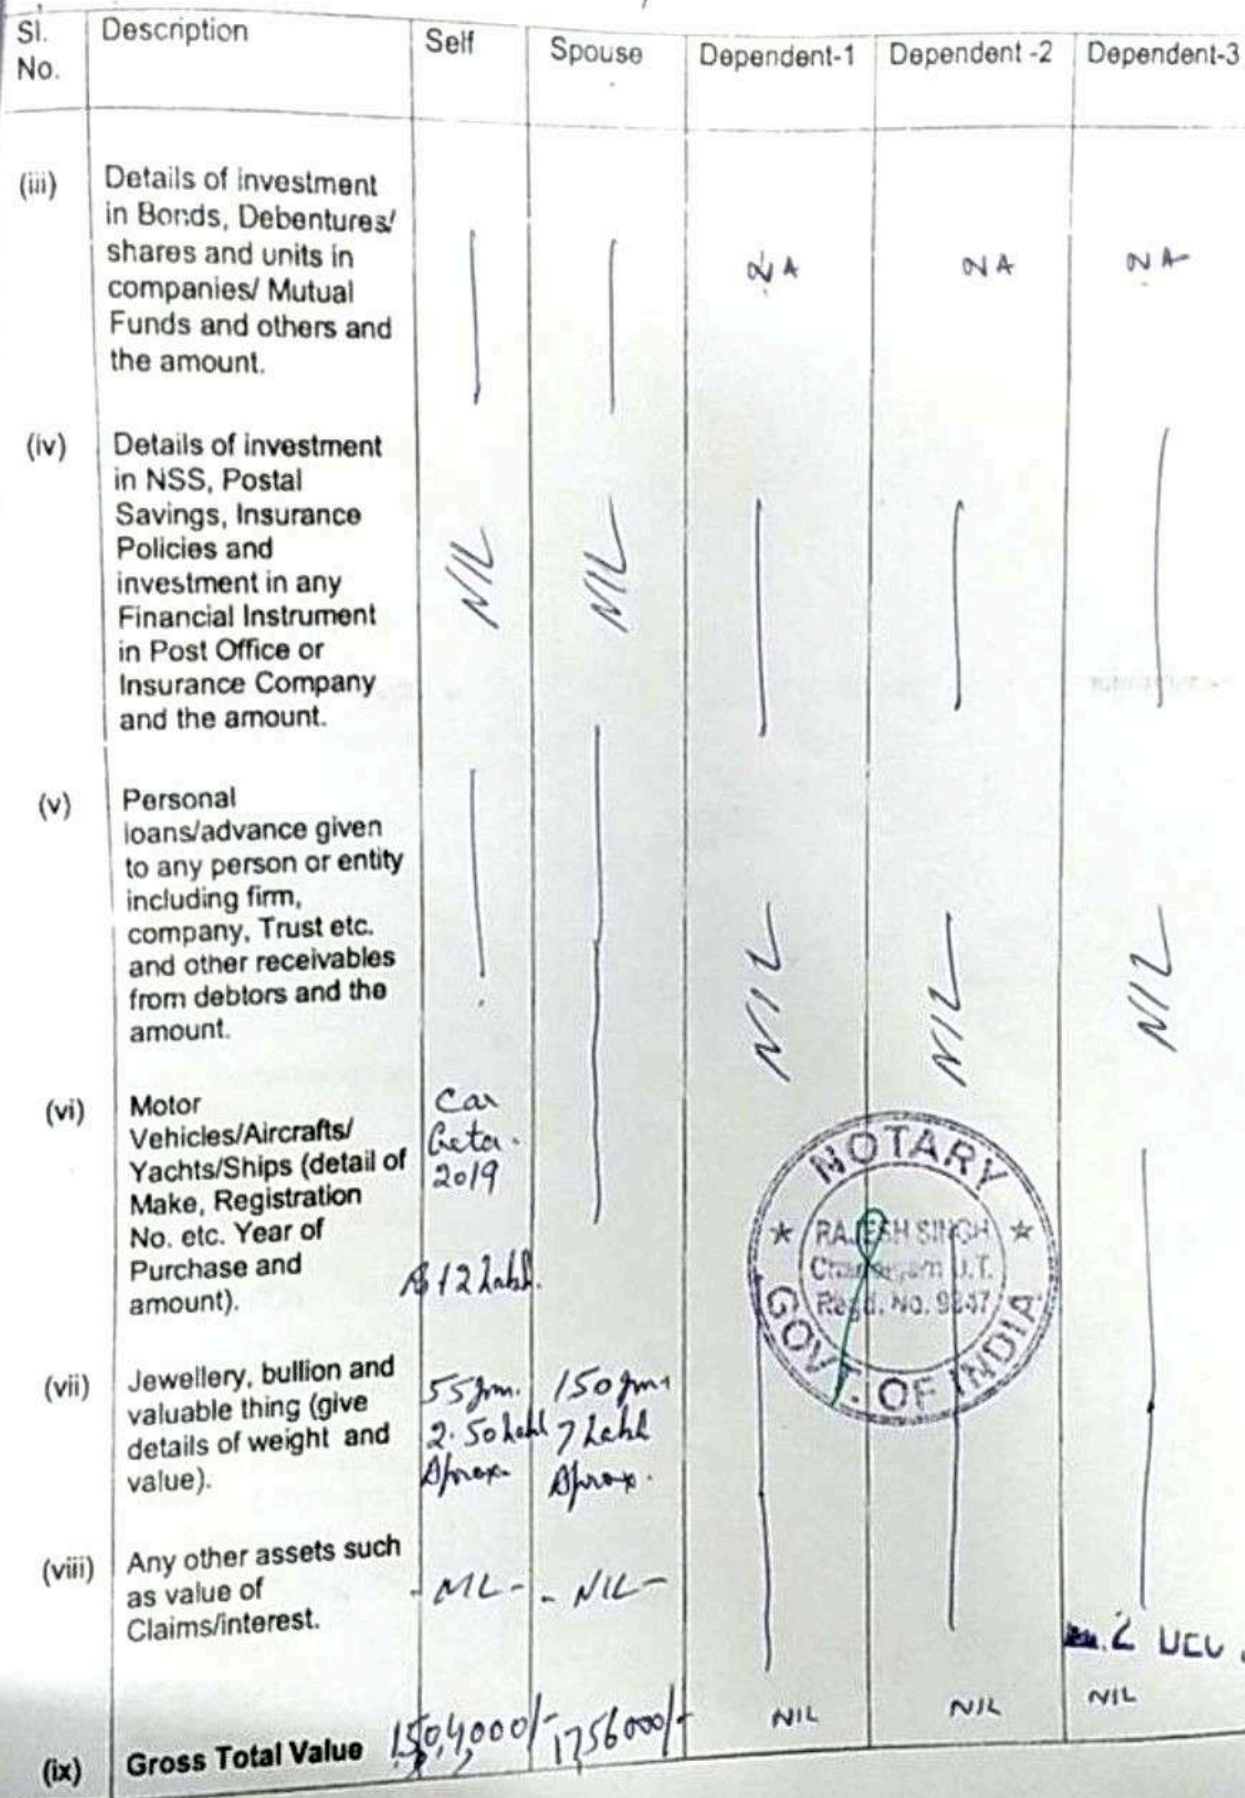 Sl. No.
Description
Self
Spouse
Dependent-1
Dependent -2
Dependent-3
(iii)
Details of investment
in Bonds, Debentures/
shares and units in
companies/ Mutual
Funds and others and
the amount.
NA
NA
NA
(iv)
Details of investment
in NSS, Postal
Savings, Insurance
Policies and
investment in any
Financial Instrument
in Post Office or
Insurance Company
and the amount.
NIL
NIL
(v)
Personal
loans/advance given
to any person or entity
including firm,
company, Trust etc.
and other receivables
from debtors and the
amount.
NIL
NIL
NIL
(vi)
Motor
Vehicles/Aircrafts/
Yachts/Ships (detail of
Make, Registration
No. etc. Year of
Purchase and
amount).
Car
Creta.
2019
12 Lakh.
NOTARY
RAJESH SINGH
U.T.
Regd. No. 9847
GOVT. OF INDIA
(vii)
Jewellery, bullion and
valuable thing (give
details of weight and
value).
55 gm.
2.50 Lakh
Aprox.
150 gms
7 Lakh
Aprox.
(viii)
Any other assets such
as value of
Claims/interest.
- NIL -
- NIL -
2 DEC
(ix)
Gross Total Value
1504,000/-
1756000/-
NIL
NIL
NIL